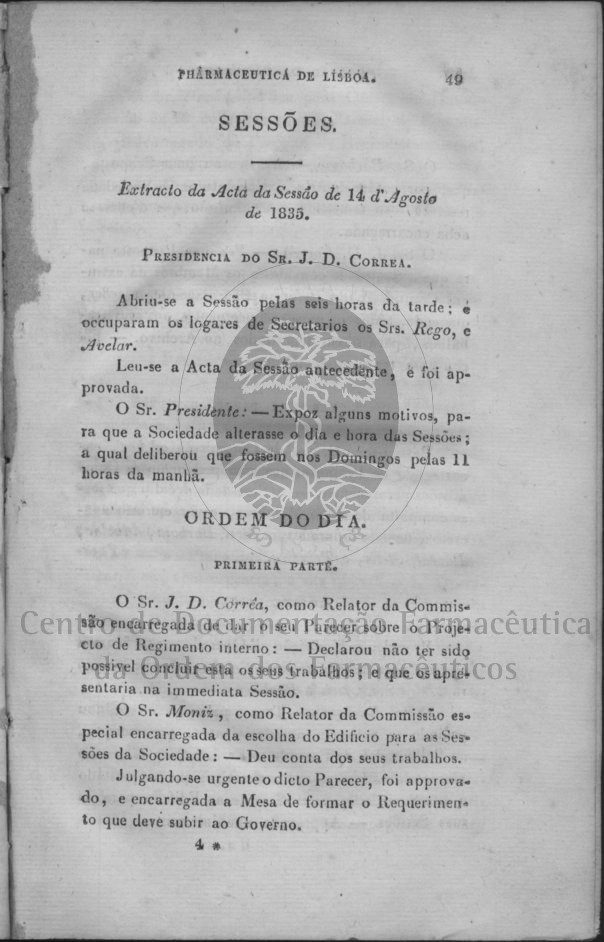 PHARMACEUTICA DE LISBOA. 49
SESSÕES.
Extracto da Acta da Sessão de 14 d'Agosto
de 1835.
PRESIDENCIA DO SR. J. D. CORREA.
Abriu-se a Sessão pelas seis horas da tarde; e
occuparam os logares de Secretarios os Srs. Rego, e
Avelar.
Leu-se a Acta da Sessão antecedente, e foi ap-
provada.
O Sr. Presidente: — Expoz alguns motivos, pa-
ra que a Sociedade alterasse o dia e hora das Sessões;
a qual deliberou que fossem nos Domingos pelas 11
horas da manhã.
ORDEM DO DIA.
PRIMEIRA PARTE.
O Sr. J. D. Corrêa, como Relator da Commis-
são encarregada de dar o seu Parecer sobre o Proje-
cto de Regimento interno: — Declarou não ter sido
possivel concluir esta os seus trabalhos; e que os apre-
sentaria na immediata Sessão.
O Sr. Moniz, como Relator da Commissão es-
pecial encarregada da escolha do Edificio para as Ses-
sões da Sociedade: — Deu conta dos seus trabalhos.
Julgando-se urgente o dicto Parecer, foi approva-
do, e encarregada a Mesa de formar o Requerimen-
to que deve subir ao Governo.
4 *
Centro de Documentação Farmacêutica
da Ordem dos Farmacêuticos